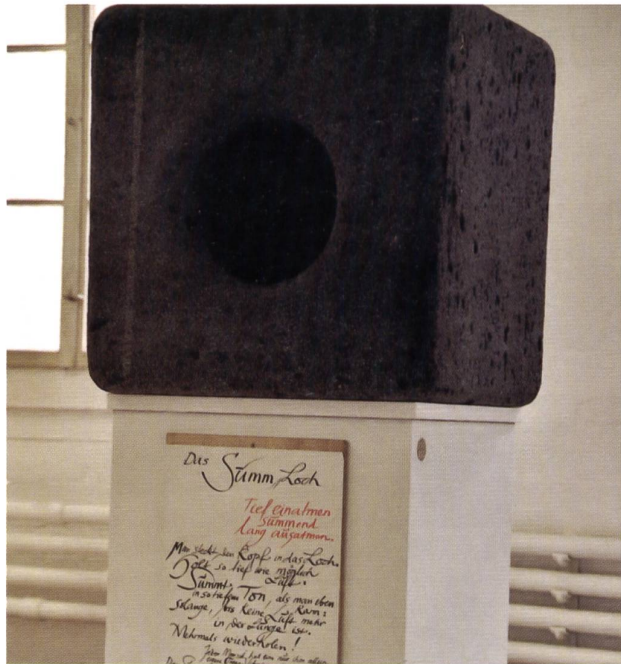 Das Summ Loch
Tief einatmen
summend
lang ausatmen..
Man steckt den Kopf in das Loch.
Holt so tief wie möglich
Luft.
Summt,
in so tiefem Ton, als man eben
kann:
solange, bis keine Luft mehr
in der Lunge ist.
Mehrmals wiederholen!
Jeder Mensch hat ein nur ihm allein